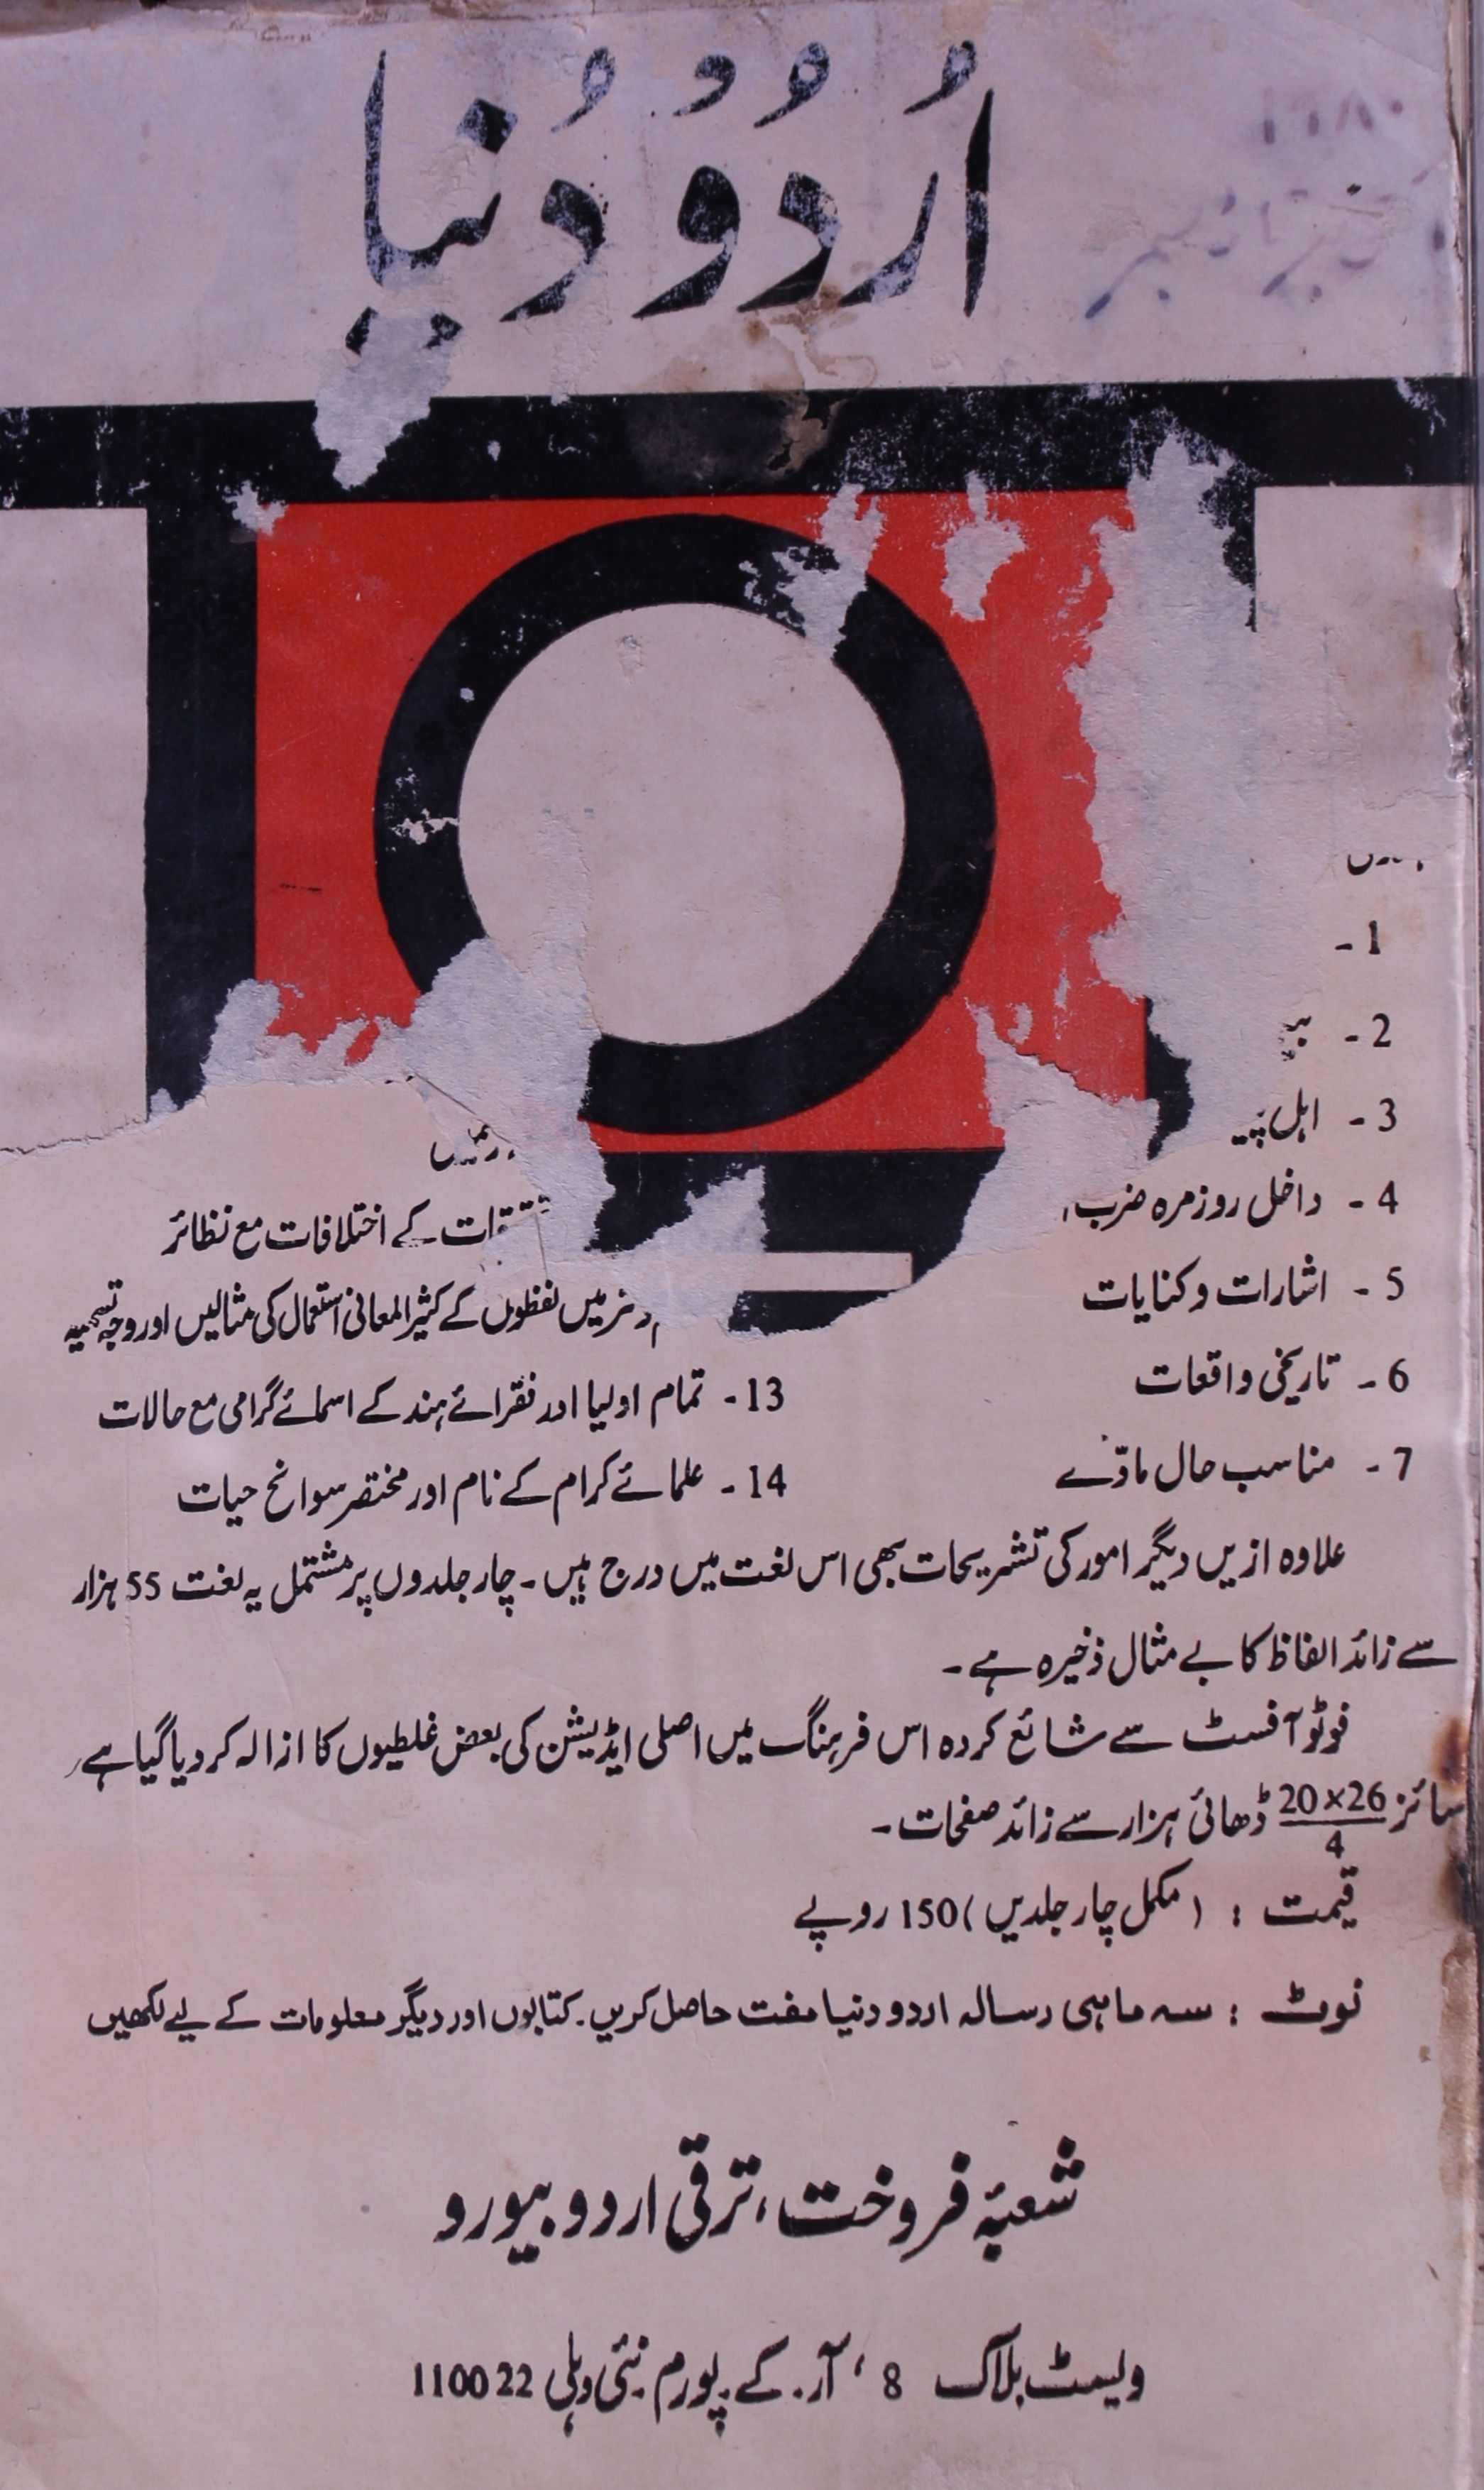 اُردُو دُنیا
۱۹۸۰
1 -
2 -
3 - اہل
4 - داخل روزمرہ ضرب
5 - اشارات و کنایات
6 - تاریخی واقعات
7 - مناسب حال مادّے
کے اختلافات مع نظائر
میں لفظوں کے کثیر المعانی استعمال کی مثالیں اور وجہ تسمیہ
13 - تمام اولیا اور فقرائے ہند کے اسمائے گرامی مع حالات
14 - علمائے کرام کے نام اور مختصر سوانح حیات
علاوہ ازیں دیگر امور کی تشریحات بھی اس لغت میں درج ہیں۔ چار جلدوں پر مشتمل یہ لغت 55 ہزار
سے زائد الفاظ کا بے مثال ذخیرہ ہے۔
فوٹو آفسٹ سے شائع کردہ اس فرہنگ میں اصلی ایڈیشن کی بعض غلطیوں کا ازالہ کر دیا گیا ہے،
سائز 20×26/4 ڈھائی ہزار سے زائد صفحات۔
قیمت : (مکمل چار جلدیں) 150 روپے
نوٹ : سہ ماہی رسالہ اردو دنیا مفت حاصل کریں۔ کتابوں اور دیگر معلومات کے لیے لکھیں
شعبۂ فروخت، ترقی اردو بیورو
ویسٹ بلاک 8، آر۔ کے۔ پورم۔ نئی دہلی 110022